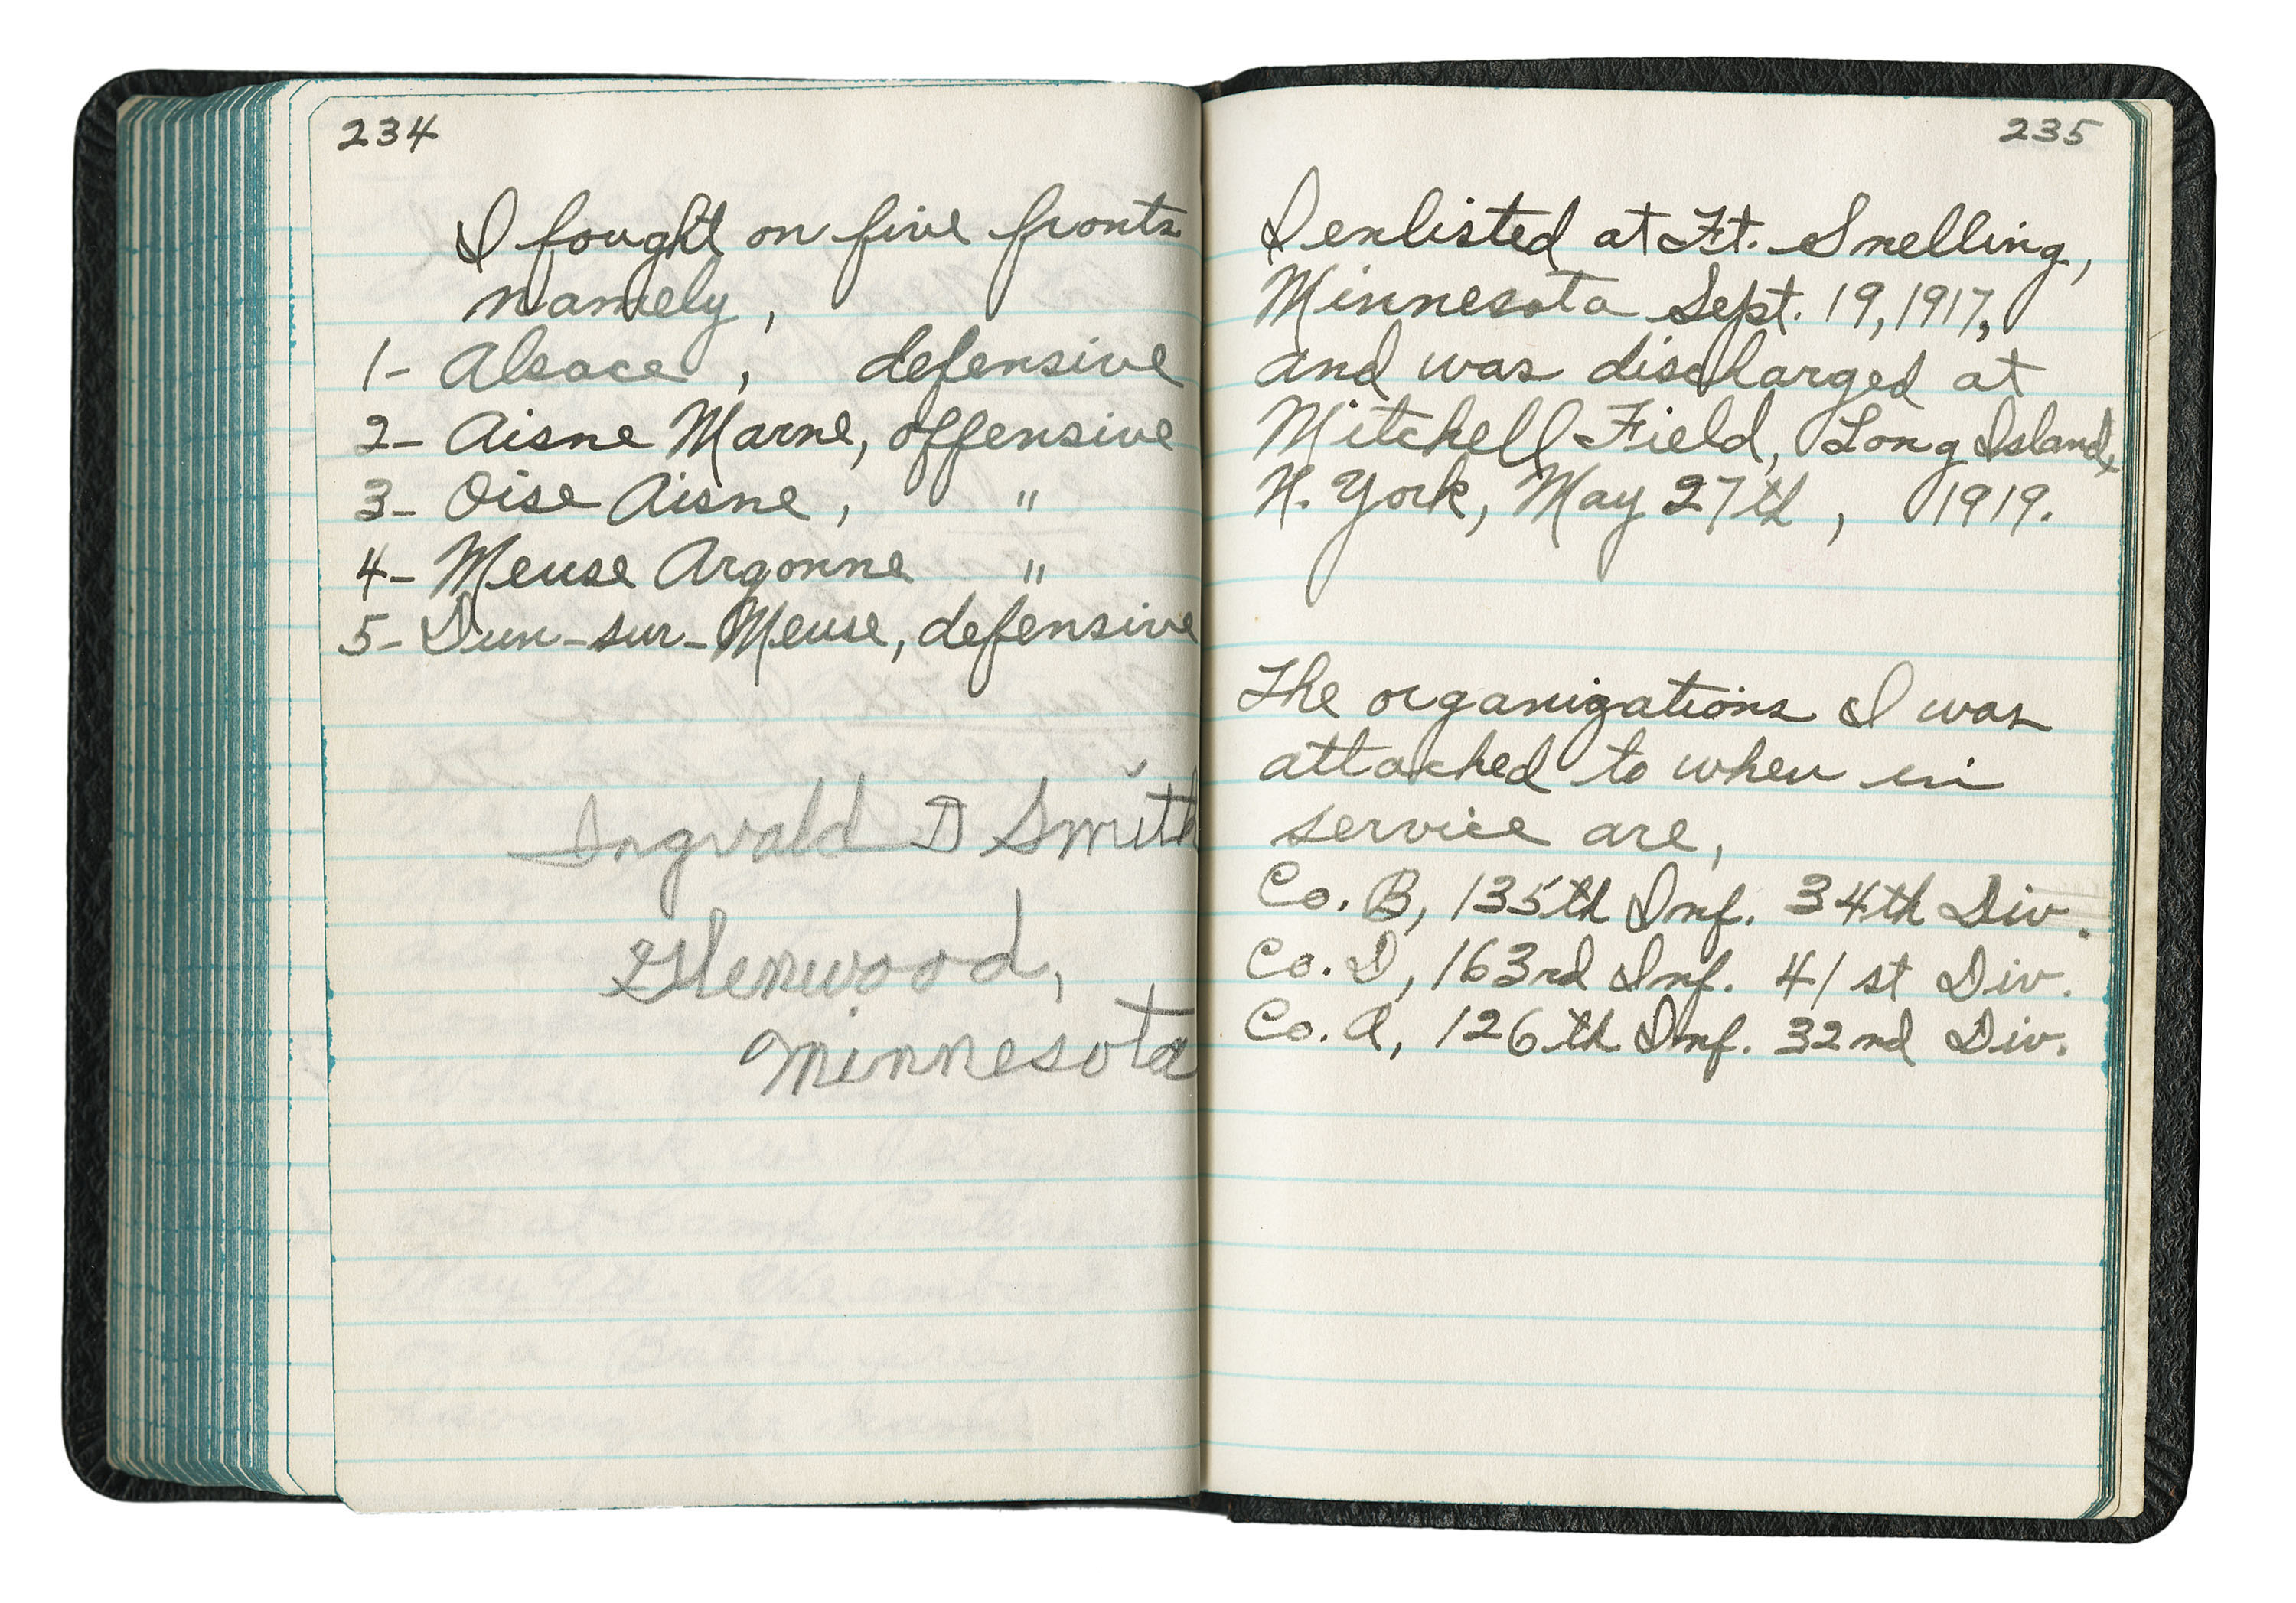 234
I fought on five fronts
namely,
1- Alsace, defensive
2- Aisne Marne, offensive
3- Oise Aisne, "
4- Meuse Argonne "
5- Dun-sur-Meuse, defensive
Ingvald D Smith
Glenwood,
Minnesota
235
I enlisted at Ft. Snelling,
Minnesota Sept. 19, 1917,
and was discharged at
Mitchell Field, Long Island,
N. York, May 27th, 1919.
The organizations I was
attached to when in
service are,
Co. B, 135th Inf. 34th Div.
Co. D, 163rd Inf. 41st Div.
Co. A, 126th Inf. 32nd Div.